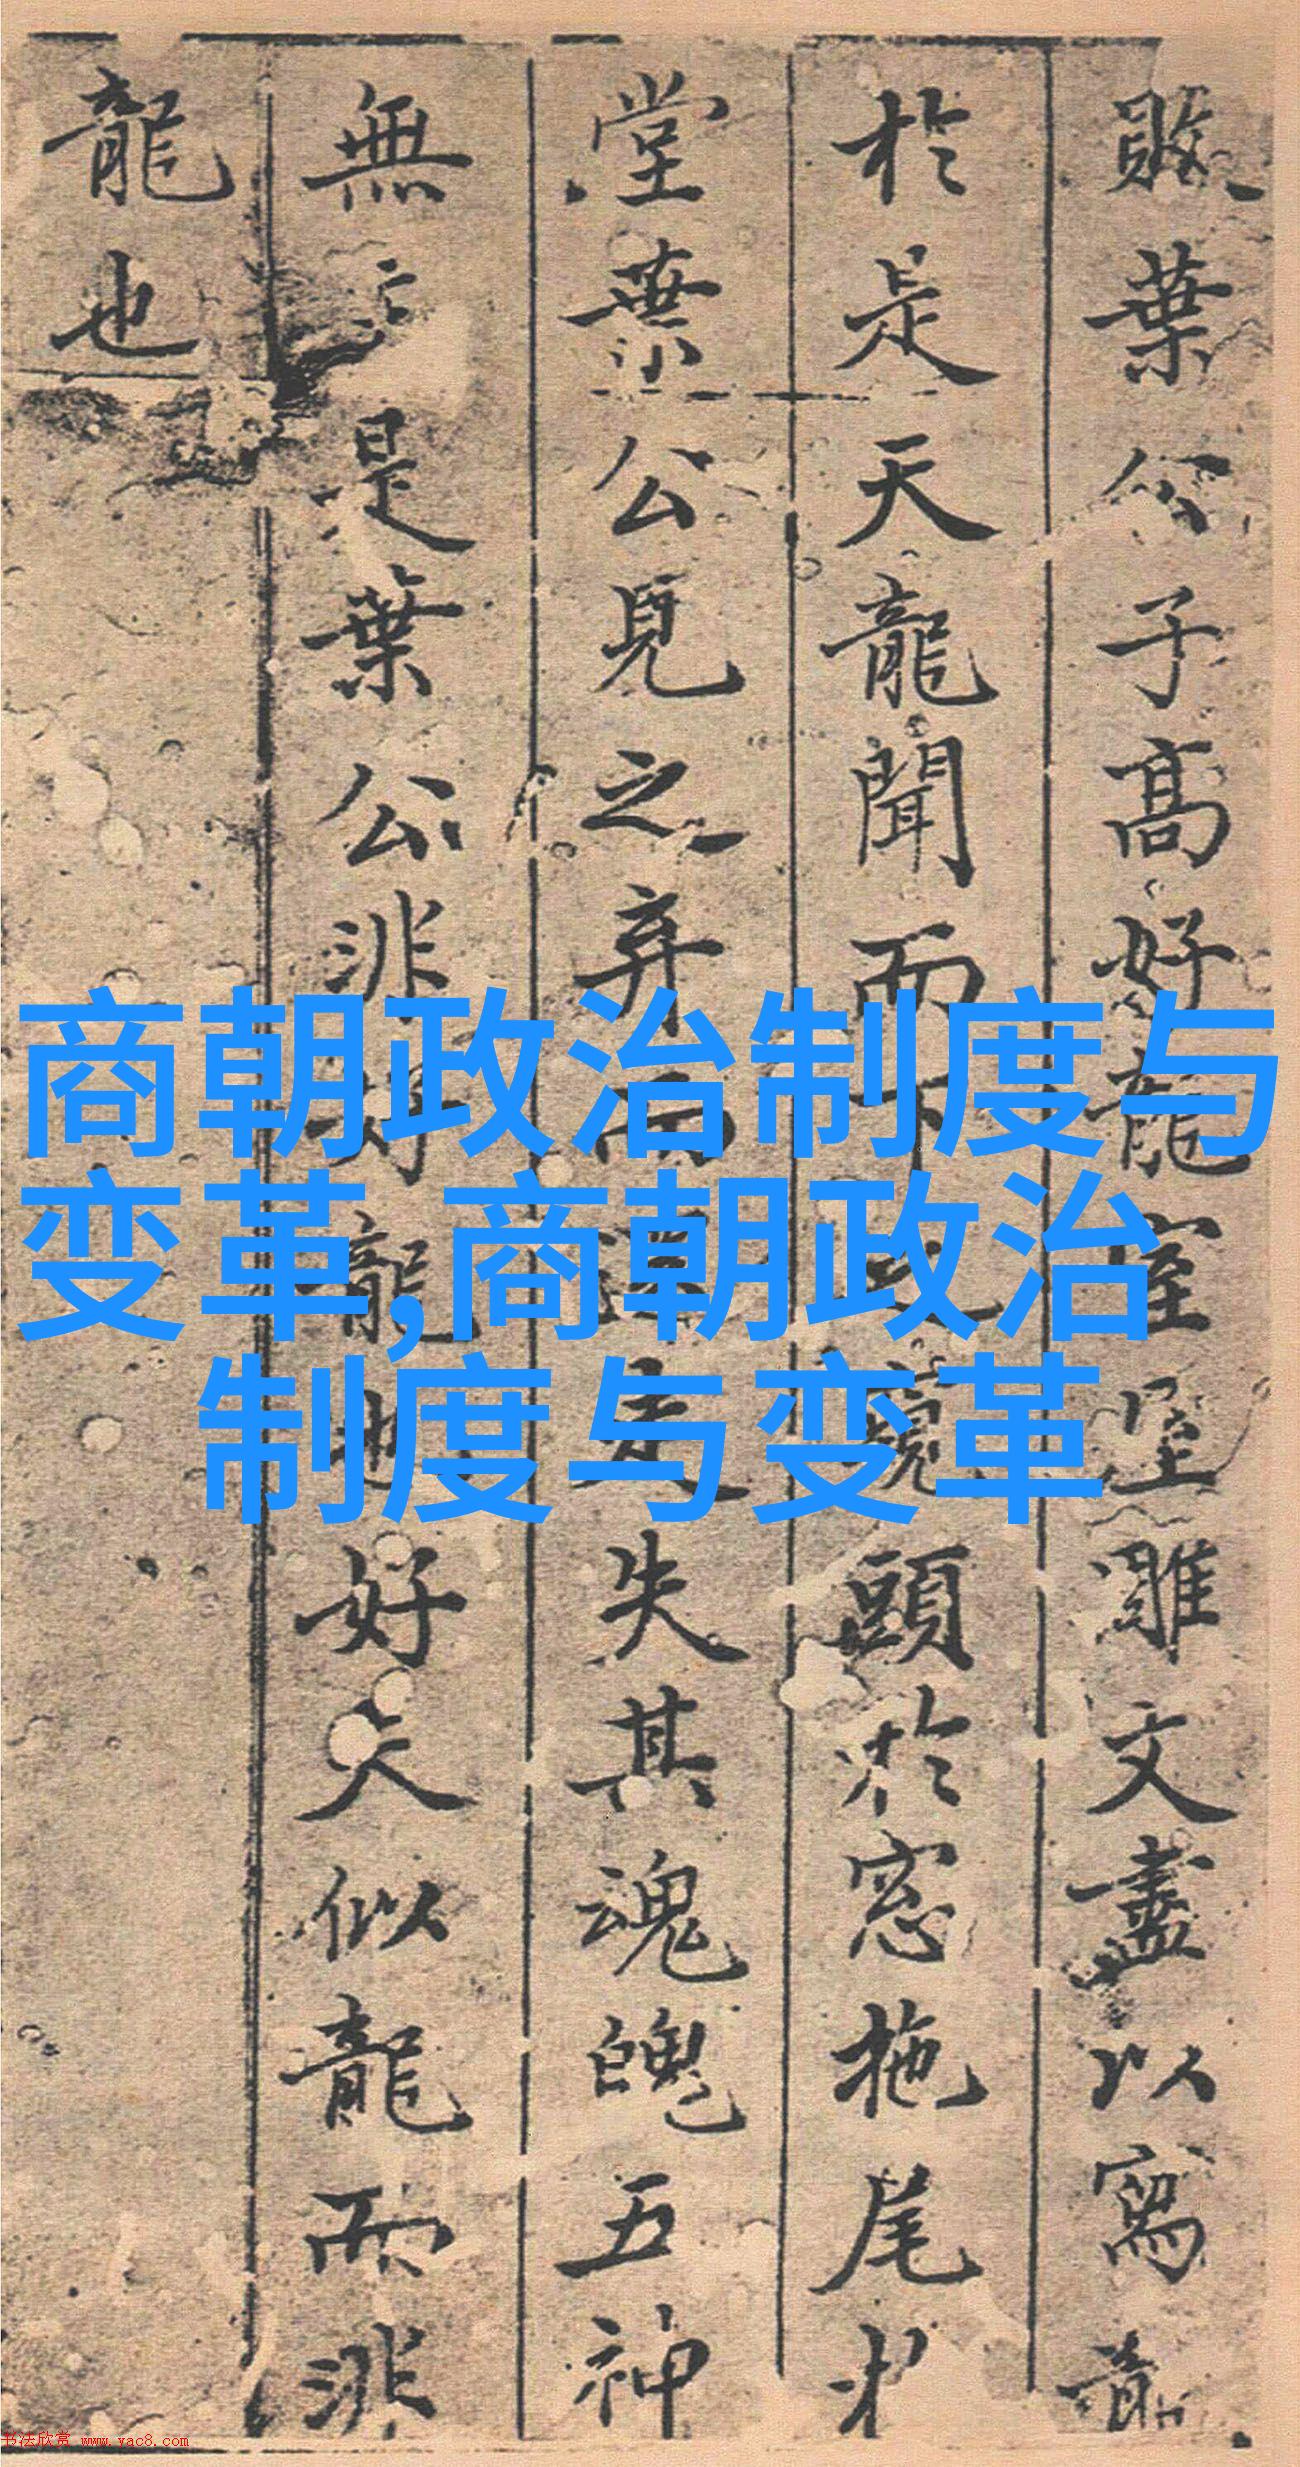 敗葉公子高好龍室堊雕文盡以寫龍
於是天龍聞而下之窺頭於窓拖尾
堂葉公見之弃而還走失其魂魄五神
無主是葉公非好龍也好夫似龍而非
龍也
商朝政治制度与
变革,商朝政治
制度与变革
书法欣赏 www.yac8.com